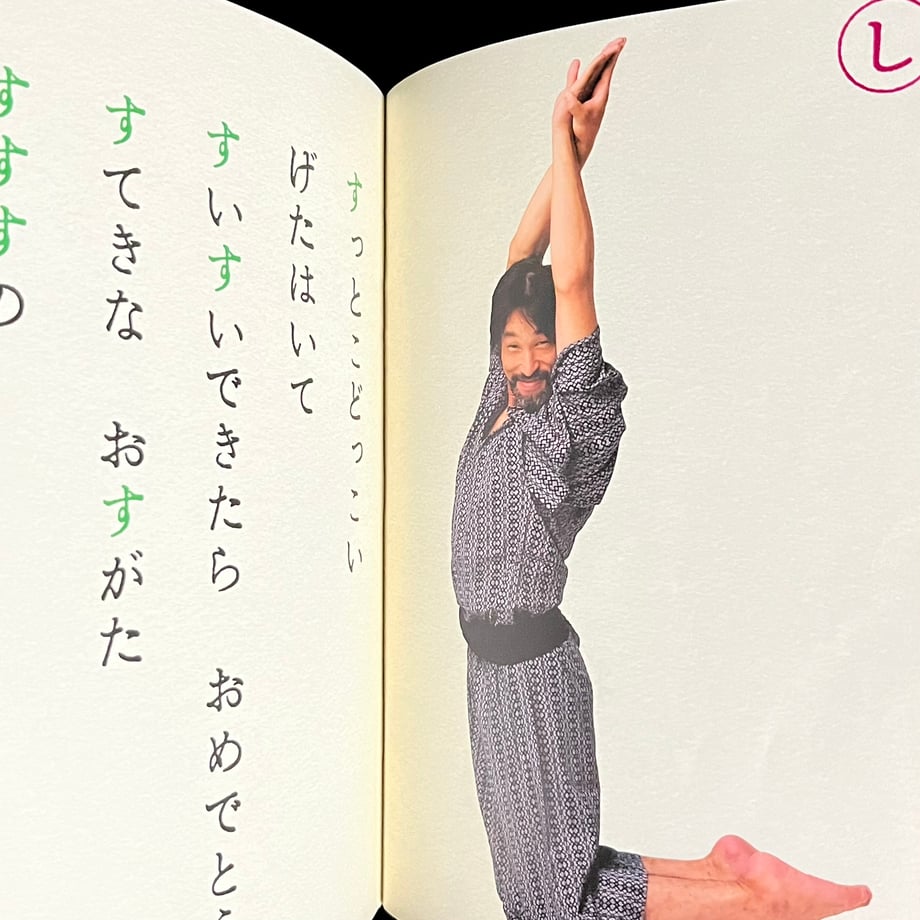 し
すっとこどっこい
げたはいて
すいすいできたら　おめでとう
すてきな　おすがた
すすすの